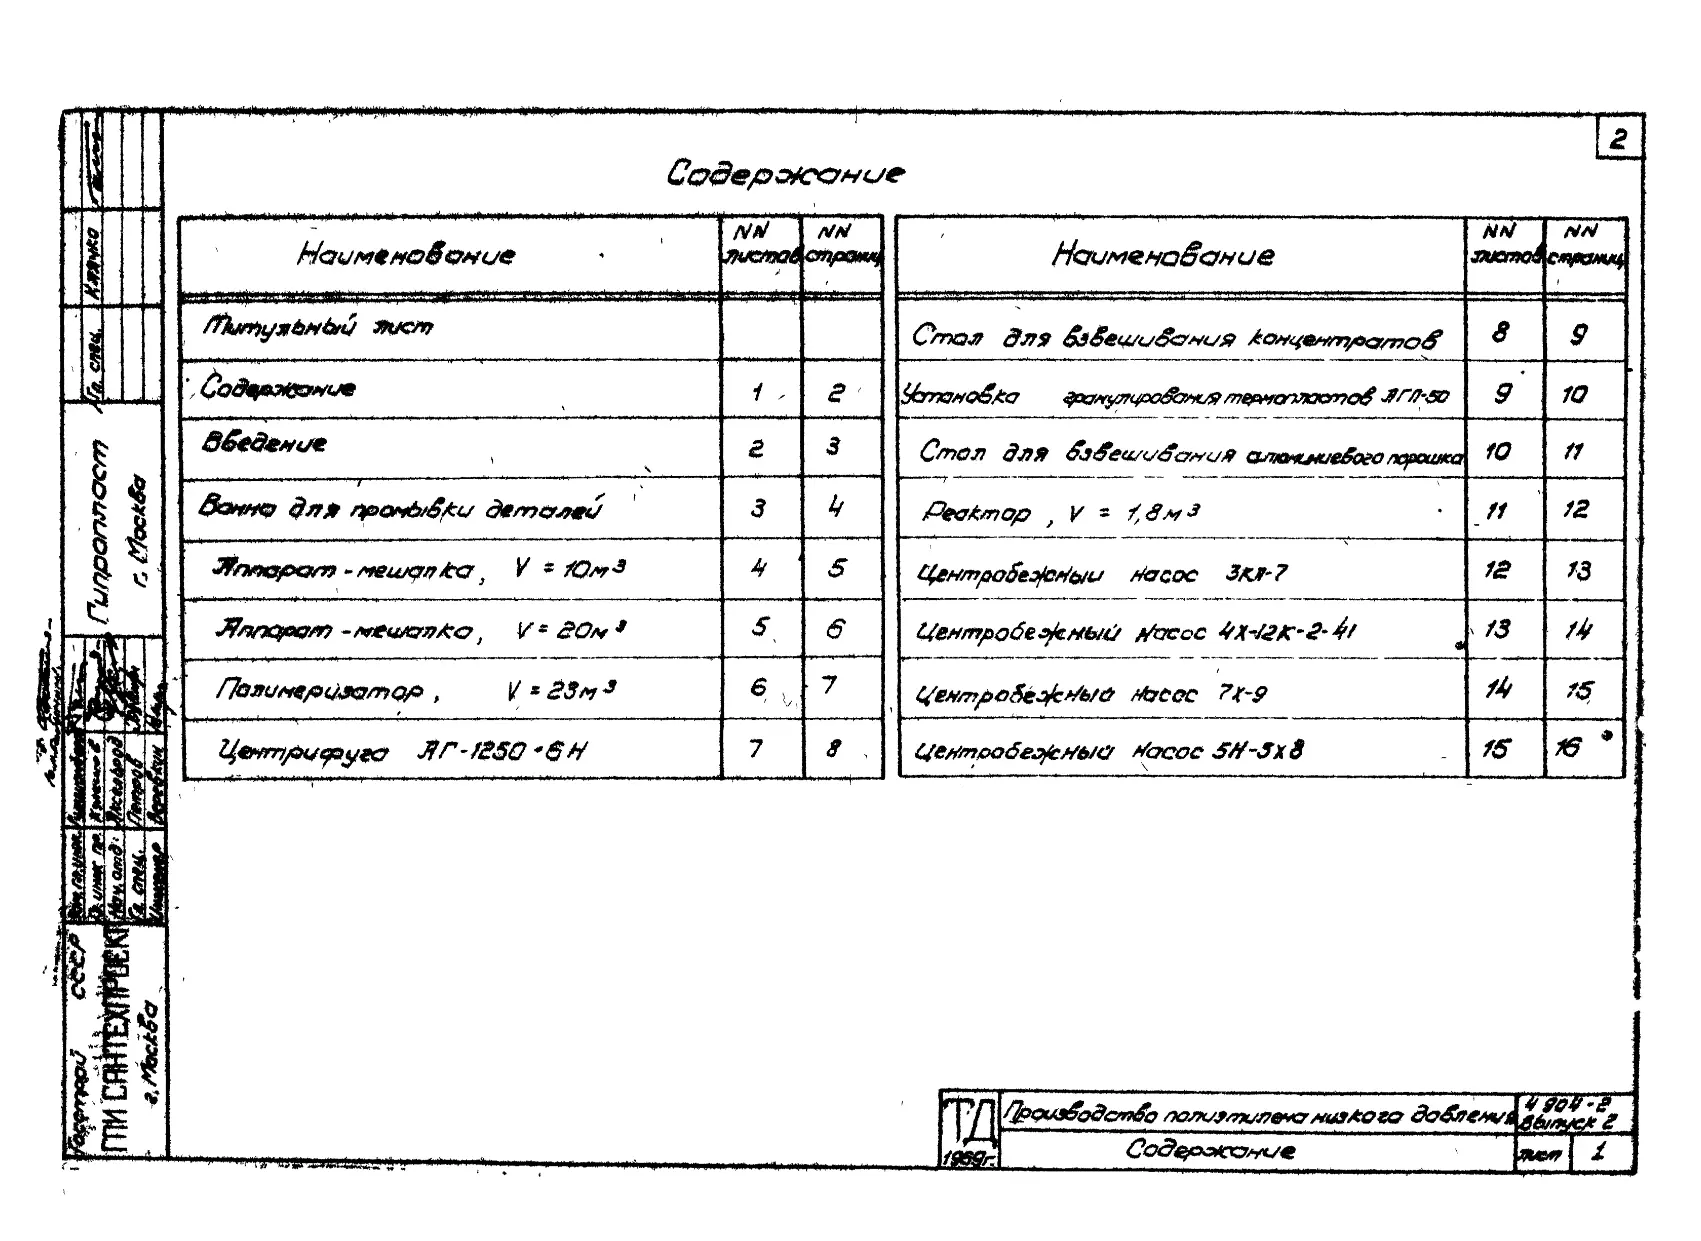 2
Содержание
Наименование NN листов NN страниц
Титульный лист
Содержание 1 2
Введение 2 3
Ванна для промывки деталей 3 4
Аппарат-мешалка, V = 10м³ 4 5
Аппарат-мешалка, V = 20м³ 5 6
Полимеризатор, V = 23м³ 6 7
Центрифуга АГ-1250-6Н 7 8
Наименование NN листов NN страниц
Стол для взвешивания концентратов 8 9
Установка гранулирования термопластов ЛГП-50 9 10
Стол для взвешивания алюминиевого порошка 10 11
Реактор, V = 1,8м³ 11 12
Центробежный насос 12 13
Центробежный насос 4Х-12К-2-41 13 14
Центробежный насос 7Х-9 14 15
Центробежный насос 5Н-5х8 15 16
Гл. спец. Клячко
Гипропласт
г. Москва
Нач. отд. Аксельрод
Гл. спец. Петров
Инженер Веревкин
Госстрой СССР
ГПИ САНТЕХПРОЕКТ
г. Москва
ТД
1969г.
Производство полиэтилена низкого давления
4.904-2
выпуск 2
Содержание
лист 1